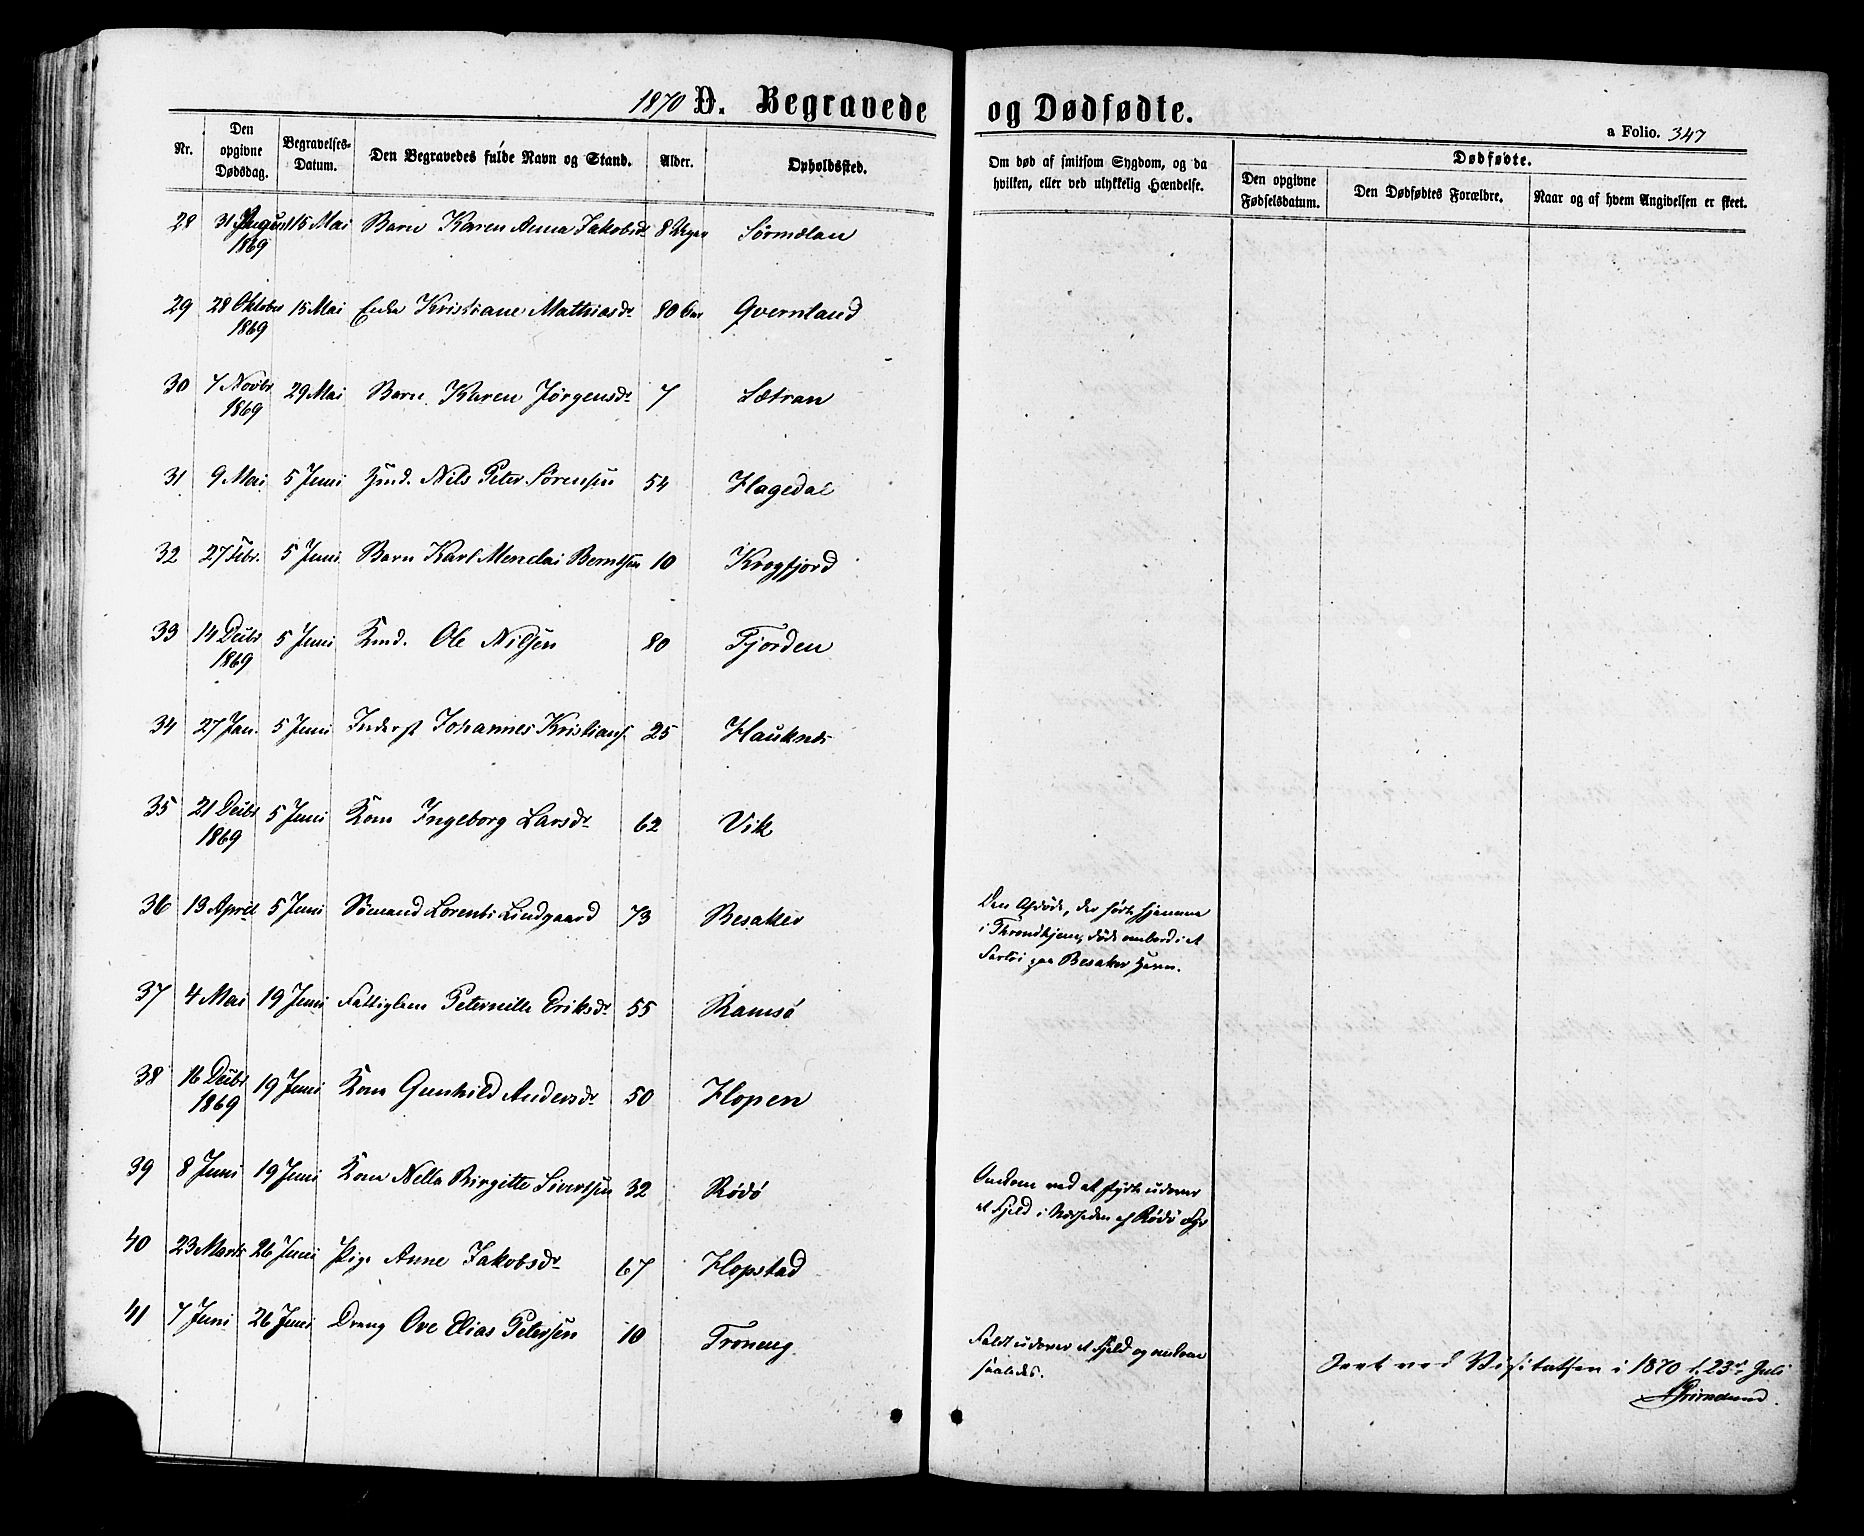 1870 D. Begravede og Dødfødte.
a Folio. 347
Nr. Den opgivne Dødsdag. Begravelses-Datum. Den Begravedes fulde Navn og Stand. Alder. Opholdssted. Om død af smitsom Sygdom, og da hvilken, eller ved ulykkelig Hændelse. Dødfødte. Den opgivne Fødselsdatum. Den Dødfødtes Forældre. Naar og af hvem Angivelsen er skeet.
28 31 August 1869 15 Mai Barn Karen Anna Jakobsdr 8 Uger Sørmælan
29 28 Oktober 1869 15 Mai Enke Kristiane Mathiasdr 80 Qvernland
30 7 Novbr 1869 29 Mai Barn Karen Jørgensdr 7 Sætran
31 9 Mai 5 Juni Nils Peter Sørensen 54 Hagedal
32 27 Febr. 5 Juni Barn Karl Menelai Berntsen 10 Krogfjord
33 14 Decbr 1869 5 Juni Ole Nilsen 80 Fjorden
34 27 Jan. 5 Juni Inderst Johannes Kristians. 25 Hauknes
35 21 Decbr 1869 5 Juni Kone Ingeborg Larsdr 62 Vik
36 13 April 5 Juni Sømand Lorents Lindgaard 73 Besaker
Den Afdøde, der hørte hjemme
i Throndhjem, døde ombord i et
Fartøi paa Besaker Havn.
37 4 Mai 19 Juni Fattiglem Peternelle Eriksdr 55 Ramsø
38 16 Decbr 1869 19 Juni Kone Gunhild Andersdr 50 Hopen
39 8 Juni 19 Juni Kone Nella Birgitte Sivertsen 32 Rødø
Omkom ved at styrte udover
et Fjeld i Nærheden af Rødø
40 23 Marts 26 Juni Pige Anne Jakobsdr 67 Hopstad
41 7 Juni 26 Juni Dreng Ove Elias Petersen 10 Troneng.
Faldt udover et Fjeld og omkom
saaledes.
Seet ved Visitatsen i 1870 d. 23de Juli